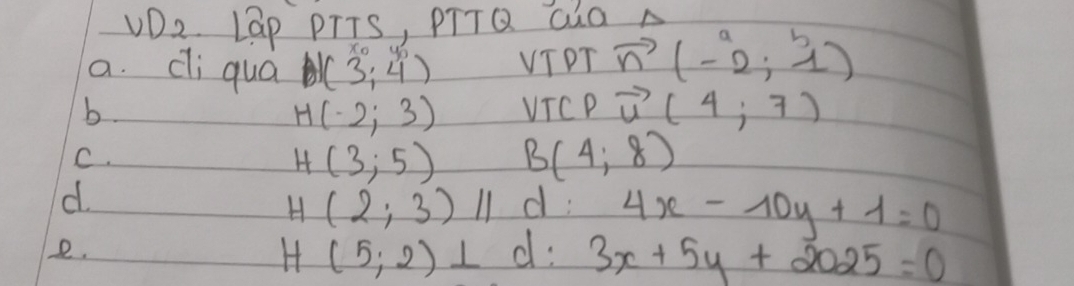 VD2. Lập PTTS, PTTQ của Δ
a. đi qua H(3; 4) VTPT n⃗ (-2; 1)
b. H(-2; 3) VTCP u⃗ (4; 7)
c. H(3; 5) B(4; 8)
d. H(2; 3) // d: 4x - 10y + 1 = 0
e. H(5; 2) ⊥ d: 3x + 5y + 2025 = 0